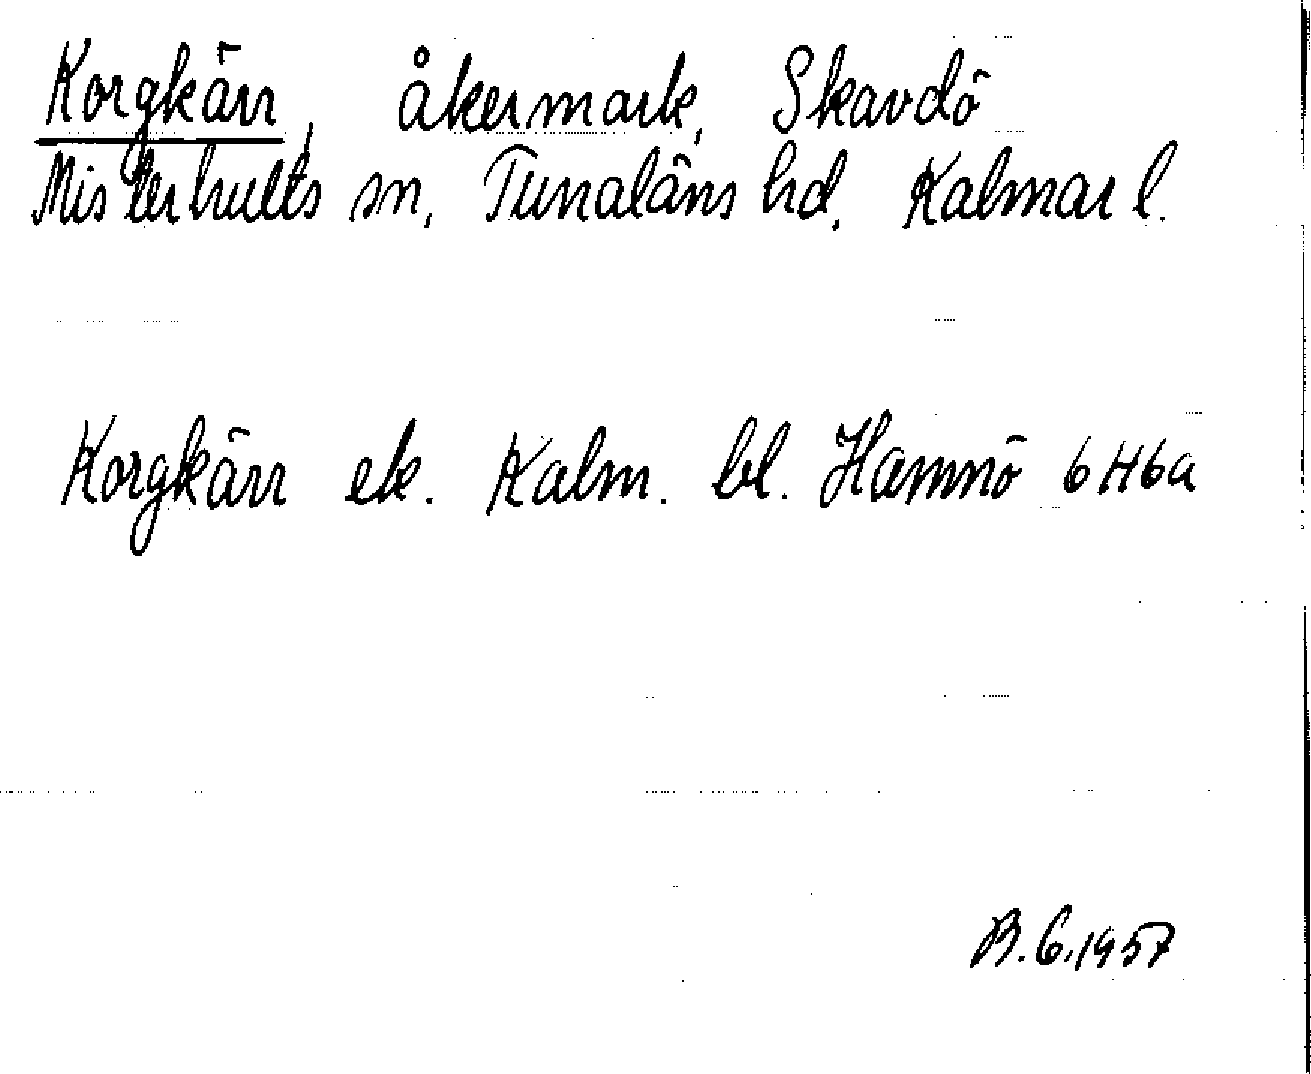 Korgkärr, åkermark, Skavdö
Misterhults sn, Tunaläns hd, Kalmar l.
Korgkärr ek. Kalm. bl. Hamnö 6H6a
B.G.1957